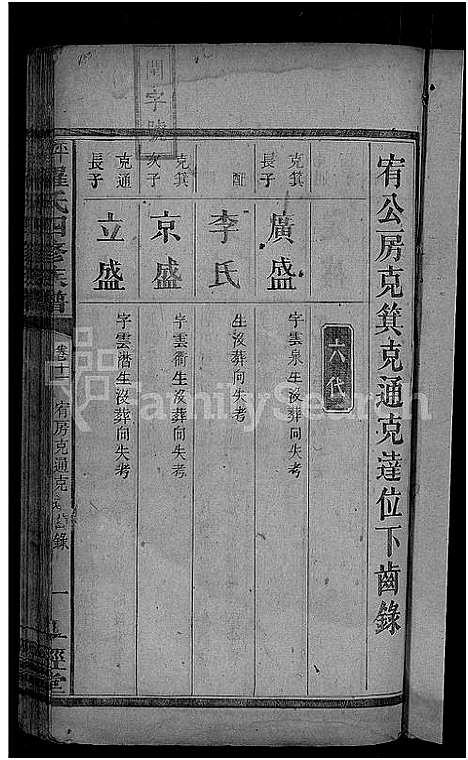 宥公房克箕克通克達位下齒錄
六代
克箕
長子
廣盛
字雲泉生沒葬向失考
配
李氏
生沒葬向失考
克箕
次子
京盛
字雲衢生沒葬向失考
克通
長子
立盛
字雲潛生沒葬向失考
羅氏四修族譜
卷十一
宥房克通克
公齒錄
一
閏字號
FamilySearch